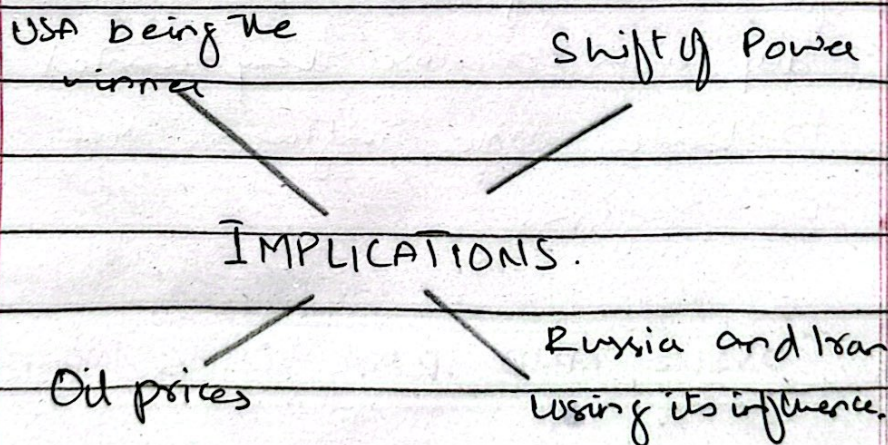 USA being the
winner
Shift of Power
IMPLICATIONS.
Oil prices
Russia and Iran
losing its influence.